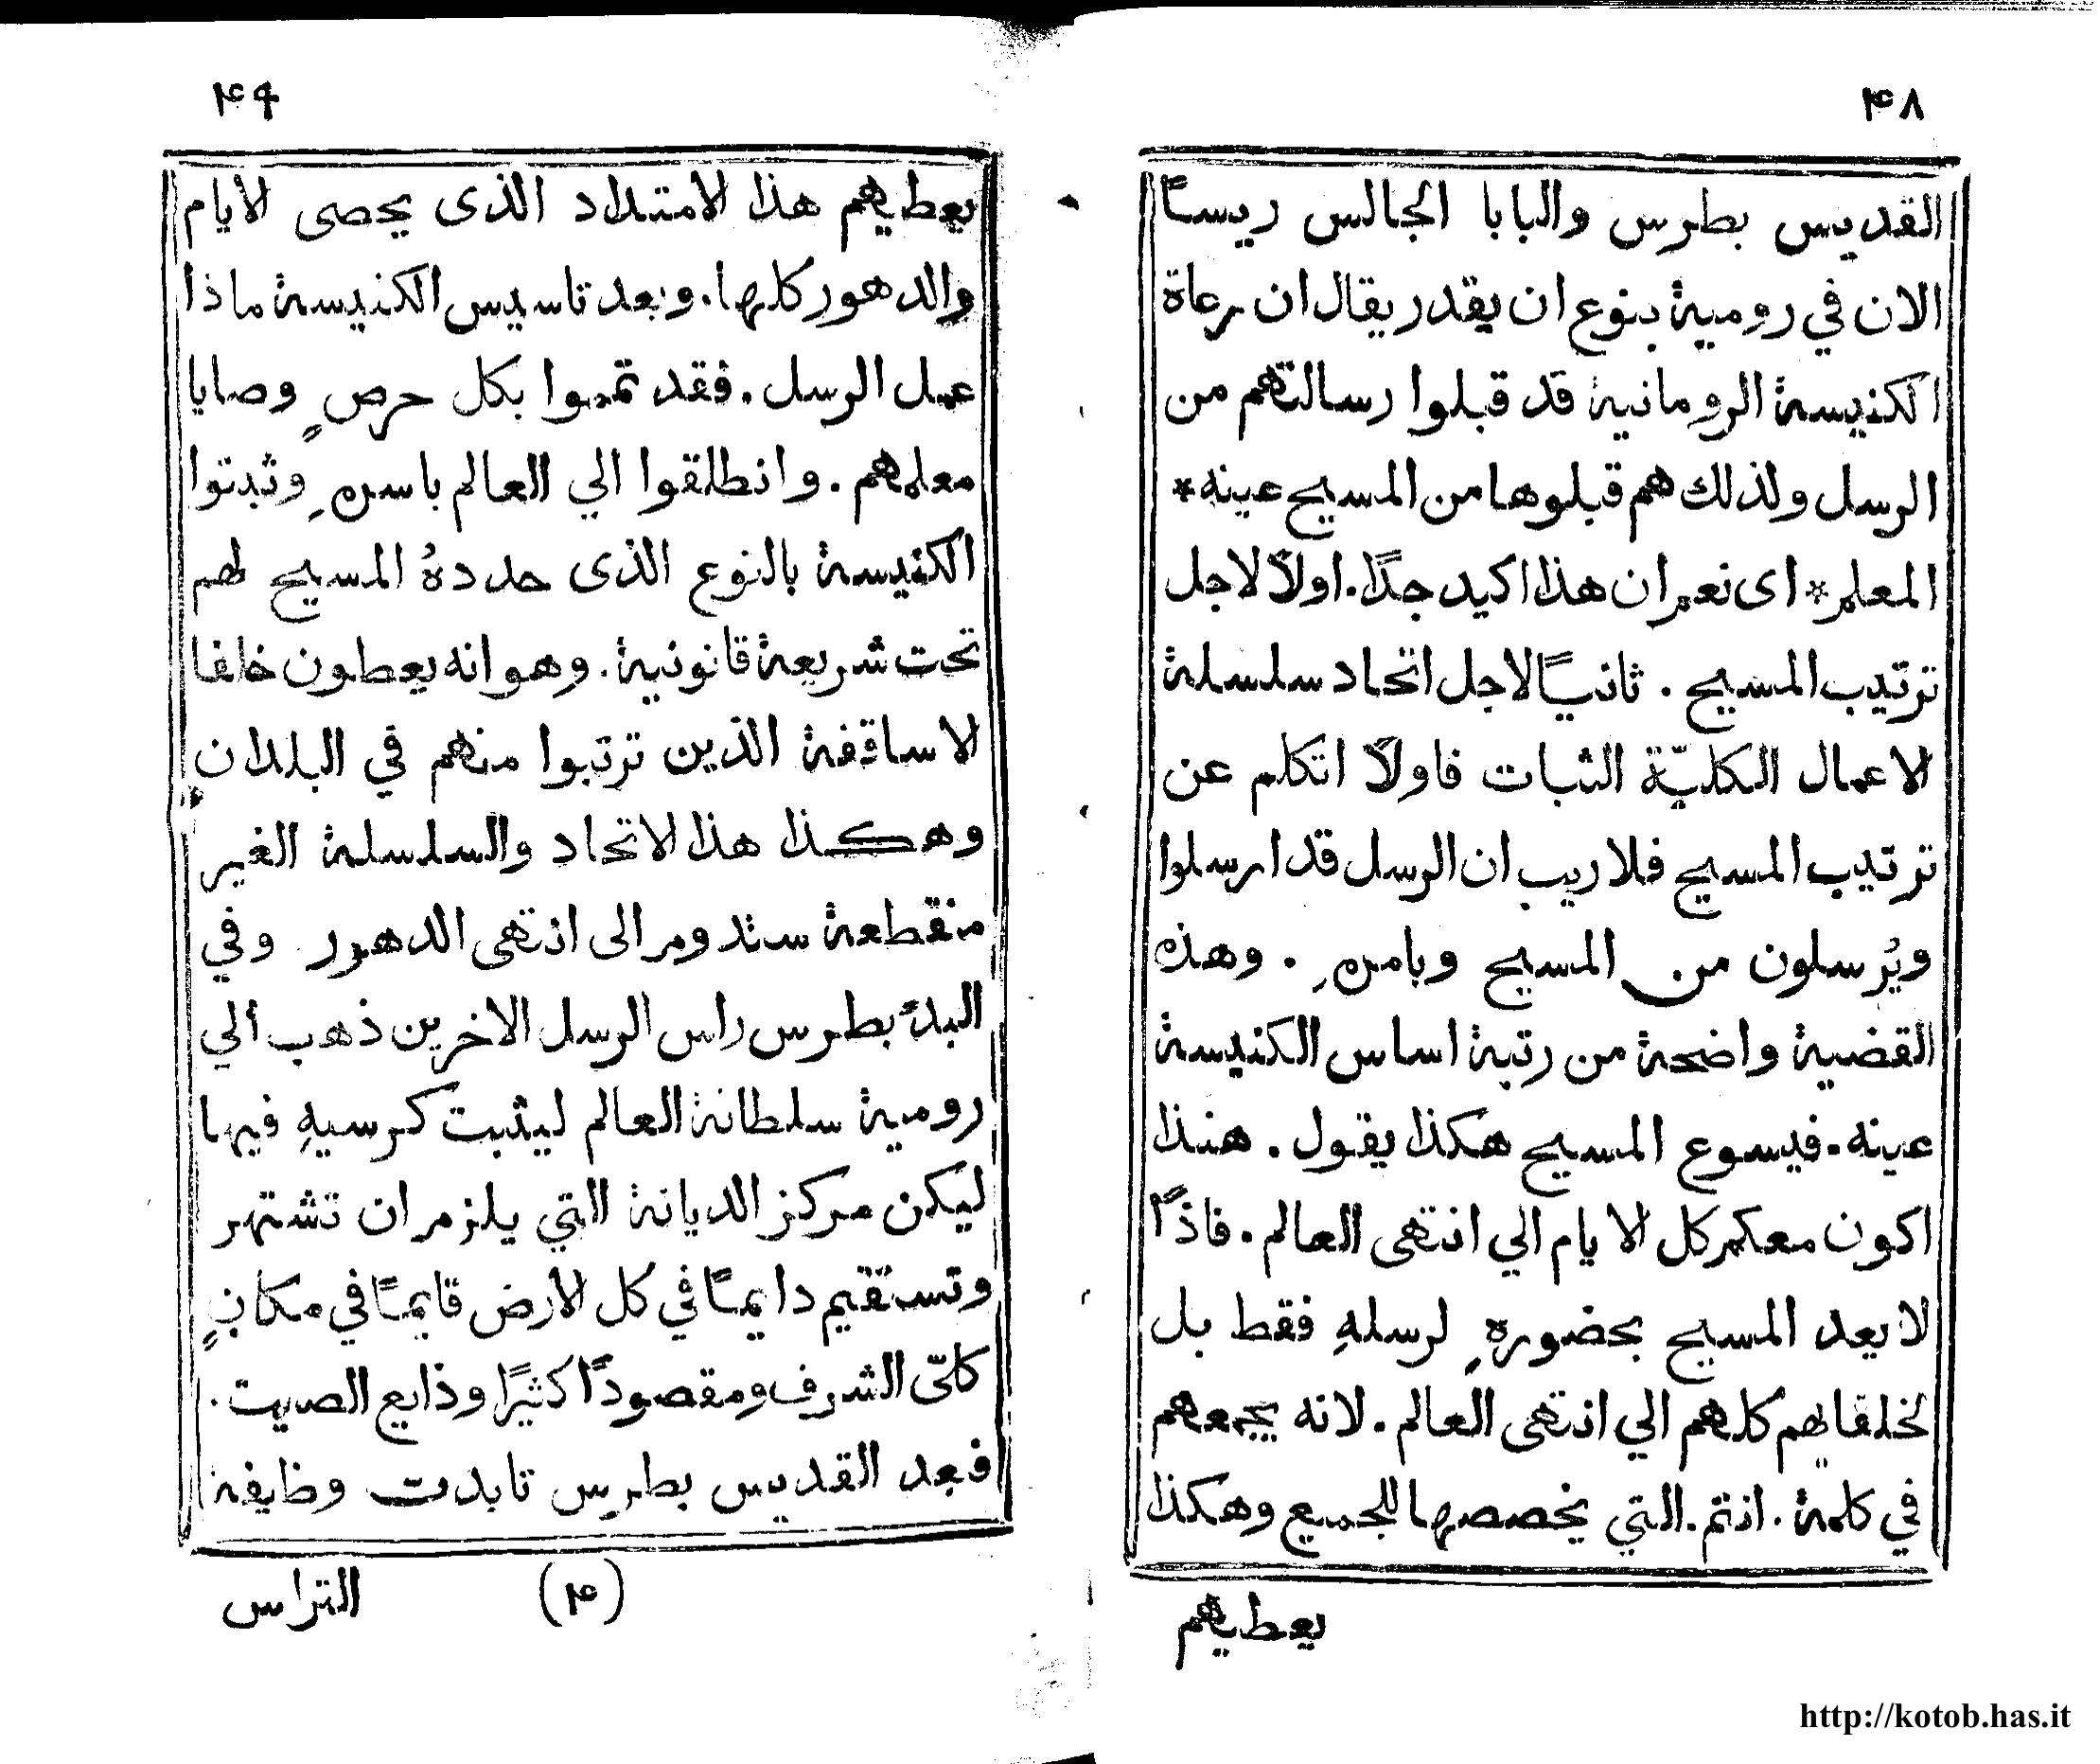 ٤٨
القديس بطرس والبابا الجالس ريسًا
الان في رومية بنوع ان يقدر يقال ان رعاة
الكنيسة الرومانية قد قبلوا رسالتهم من
الرسل ولذلك هم قبلوها من المسيح عينه *
المعلم * اى نعم ان هذا اكيد جدًا . اولاً لاجل
ترتيب المسيح . ثانيًا لاجل اتحاد سلسلة
الاعمال الكليّة الثبات فاولاً اتكلم عن
ترتيب المسيح فلا ريب ان الرسل قد ارسلوا
ويُرسلون من المسيح وبامرهِ . وهذه
القضية واضحة من رتبة اساس الكنيسة
عينه . فيسوع المسيح هكذا يقول . هنذا
اكون معكم كل الايام الي انتهى العالم . فاذًا
لا يعد المسيح بحضورهِ لرسلهِ فقط بل
لخلفايهم كلهم الي انتهى العالم . لانه يجمعهم
في كلمة . انتم . التي يخصصها للجميع وهكذا
يعطيهم
٤٩
يعطيهم هذا الامتداد الذى يحصى الايام
والدهور كلها . وبعد تاسيس الكنيسة ماذا
عمل الرسل . فقد تمموا بكل حرصٍ وصايا
معلمهم . وانطلقوا الي العالم باسرهِ وثبتوا
الكنيسة بالنوع الذى حددهُ المسيح لهم
تحت شريعة قانونية . وهو انه يعطون خلفا
الاساقفة الذين ترتبوا منهم في البلدان
وهكذا هذا الاتحاد والسلسلة الغير
منقطعة ستدوم الى انتهى الدهور وفي
البدء بطرس راس الرسل الاخرين ذهب الي
رومية سلطانة العالم ليثبت كرسيهِ فيها
ليكن مركز الديانة التي يلزم ان تشتهر
وتستقيم دايمًا في كل الارض قايمًا في مكانٍ
كلىّ الشرف ومقصودًا كثيرًا وذايع الصيت .
فبعد القديس بطرس تابدت وظايفة
(٤)
التراس
http://kotob.has.it